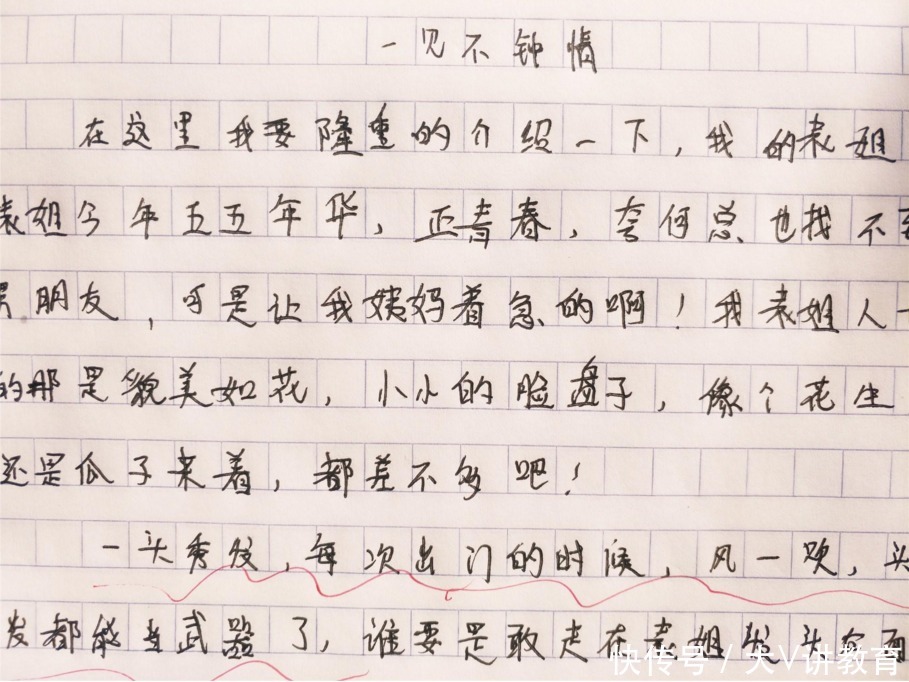 一见不钟情
在这里我要隆重的介绍一下，我的表姐
表姐今年五五年华，正青春，奈何总也找不到
男朋友，可是让我姨妈着急的啊！我表姐人一
的那是貌美如花，小小的脸盘子，像个花生
还是瓜子来着，都差不多吧！
一头秀发，每次出门的时候，风一吹，头
发都能当武器了，谁要是敢走在表姐
快传号 / 大V讲教育